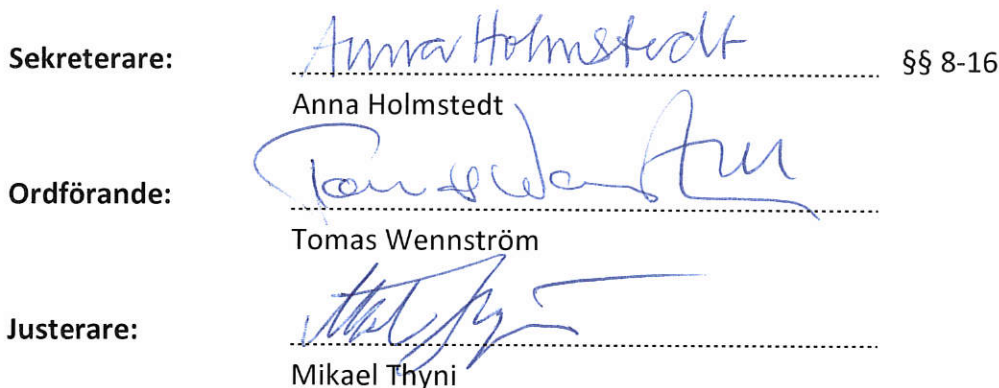 Sekreterare: Anna Holmstedt §§ 8-16
Anna Holmstedt
Ordförande: Tomas Wennström
Tomas Wennström
Justerare:
Mikael Thyni